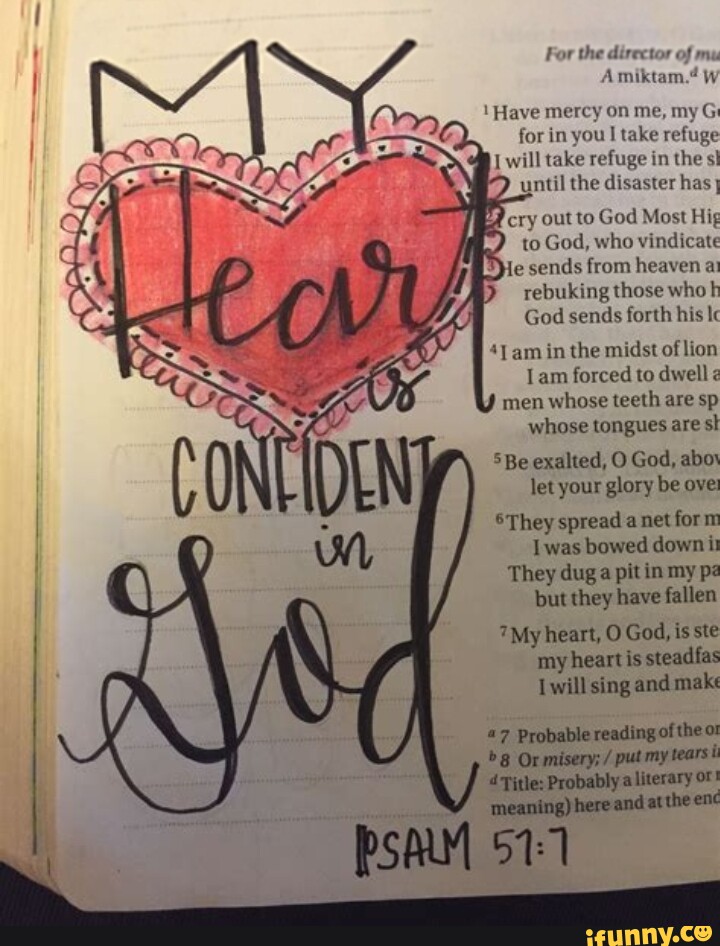 MY
Heart
is
CONFIDENT
in
God
PSALM 57:7
For the director of
A miktam.ᵈ
¹ Have mercy on me, my
for in you I take refuge
I will take refuge in the
until the disaster has
cry out to God Most
to God, who vindicate
He sends from heaven
rebuking those who
God sends forth his
⁴ I am in the midst of lion
I am forced to dwell
men whose teeth are
whose tongues are
⁵ Be exalted, O God,
let your glory be
⁶ They spread a net for
I was bowed down
They dug a pit in my
but they have fallen
⁷ My heart, O God, is
my heart is
I will sing and
ᵃ 7 Probable reading of the
ᵇ 8 Or misery; / put my tears
ᵈ Title: Probably a literary or
meaning) here and at the end
ifunny.co